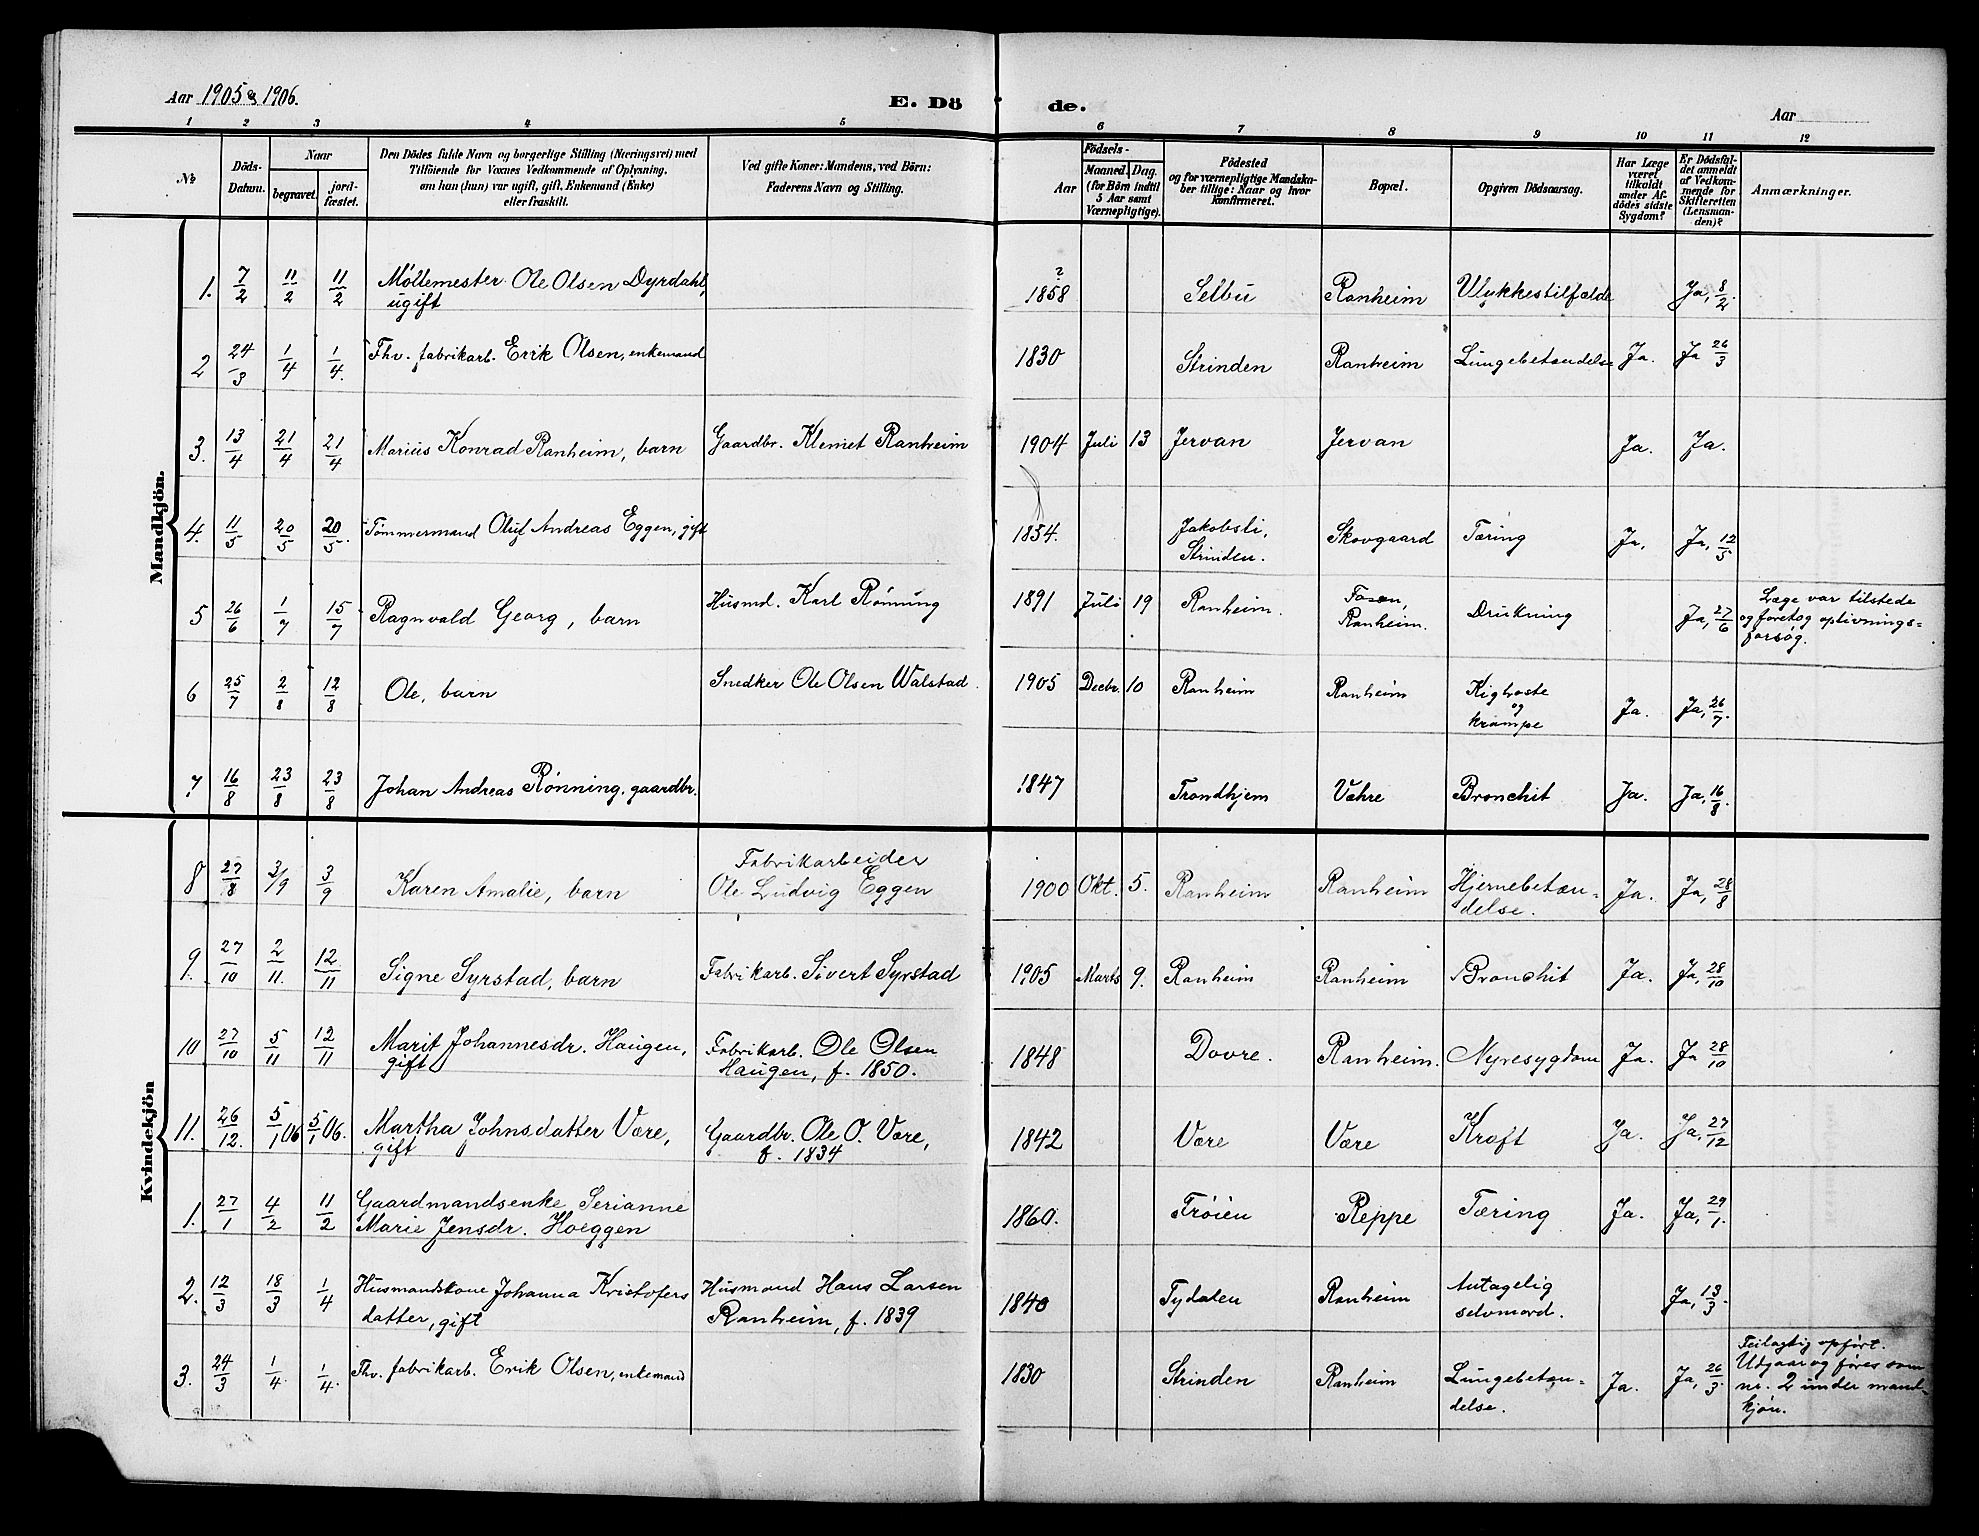 Aar 1905 & 1906.
E. Dö de.
Aar
1 2 3 4 5 6 7 8 9 10 11 12
№
Döds-
Datum.
Naar
begravet.
jord-
fæstet.
Den Dödes fulde Navn og borgerlige Stilling (Næringsvei) med
Tilföiende for Voxnes Vedkommende af Oplysning,
om han (hun) var ugift, gift, Enkemand (Enke)
eller fraskilt.
Ved gifte Koner: Mandens, ved Börn:
Faderens Navn og Stilling.
Födsels-
Aar
Maaned. Dag.
(for Börn indtil
5 Aar samt
Værnepligtige).
Födested
og for værnepligtige Mandska-
ber tillige: Naar og hvor
konfirmeret.
Bopæl.
Opgiven Dödsaarsag.
Har Læge
været
tilkaldt
under Af-
dödes sidste
Sygdom?
Er Dödsfal-
det anmeldt
af Vedkom-
mende for
Skifteretten
(Lensman-
den)?
Anmærkninger.
Mandkjön.
1. 7/2 11/2 11/2 Møllemester Ole Olsen Dyrdahl, ? 1858 Selbu Ranheim Ulykkestilfælde Ja, 8/2.
ugift
2 24/3 1/4 1/4. Fhv. fabrikarb. Erik Olsen, enkemand 1830 Strinden Ranheim Lungebetændelse Ja. Ja 26/3
3. 13/4 21/4 21/4 Marius Konrad Ranheim, barn Gaardbr. Klemet Ranheim 1904 Juli 13 Jervan Jervan Ja. Ja.
4. 11/5 20/5 20/5. Tømmermand Oluf Andreas Eggen, gift 1854. Jakobsli, Skovgaard Tæring Ja, Ja, 12/5
Strinden.
5 26/6 1/7 15/7 Ragnvald Georg, barn Husmd. Karl Rønning 1891 Juli 19 Ranheim. Drukning Ja, 27/6
Ranheim.
Læge var tilstede
og foretog oplivnings=
forsøg.
6 25/7 2/8 12/8 Ole, barn Snedker Ole Olsen Walstad. 1905 Decbr. 10 Ranheim Ranheim Kighoste Ja. Ja, 26/7.
og
krampe
7. 16/8 23/8 23/8 Johan Andreas Rønning, gaardbr. 1847 Trondhjem Være Bronchit Ja. Ja, 16/8.
Kvindekjön
8 27/8 3/9 3/9 Karen Amalie, barn Fabrikarbeider
Ole Ludvig Eggen 1900 Okt. 5. Ranheim Ranheim Hjernebetæn= Ja. Ja, 28/8
delse.
9. 27/10 2/11. 12/11 Signe Syrstad, barn Fabrikarb. Sivert Syrstad 1905 Marts 9. Ranheim Ranheim Bronchit Ja. Ja, 28/10
10 27/10 5/11 12/11 Marit Johannesdr. Haugen, Fabrikarb. Ole Olsen 1848 Dovre. Ranheim. Nyresygdom Ja. Ja 28/10
gift Haugen, f. 1850.
11. 26/12. 5/1 06 5/1 06. Martha Johnsdatter Være, Gaardbr. Ole O. Være, 1842 Være Være Kræft Ja. Ja, 27/12
gift f. 1834
1. 27/1 4/2 11/2 Gaardmandsenke Serianne 1860. Frøien Reppe Tæring Ja. Ja, 29/1.
Marie Jensdr. Hoeggen
2. 12/3 18/3 1/4 Husmandskone Johanna Kristofers Husmand Hans Larsen 1840 Tydalen Ranheim Antagelig Ja, 13/3.
datter, gift Ranheim, f. 1839 selvmord.
3. 24/3 1/4 1/4. Fhv. fabrikarb. Erik Olsen, enkemand 1830 Strinden Ranheim Lungebetæn= Ja. Ja, 26/3
delse.
Feilagtig opført.
Udgaar og føres som
nr. 2 under mand-
kjøn.